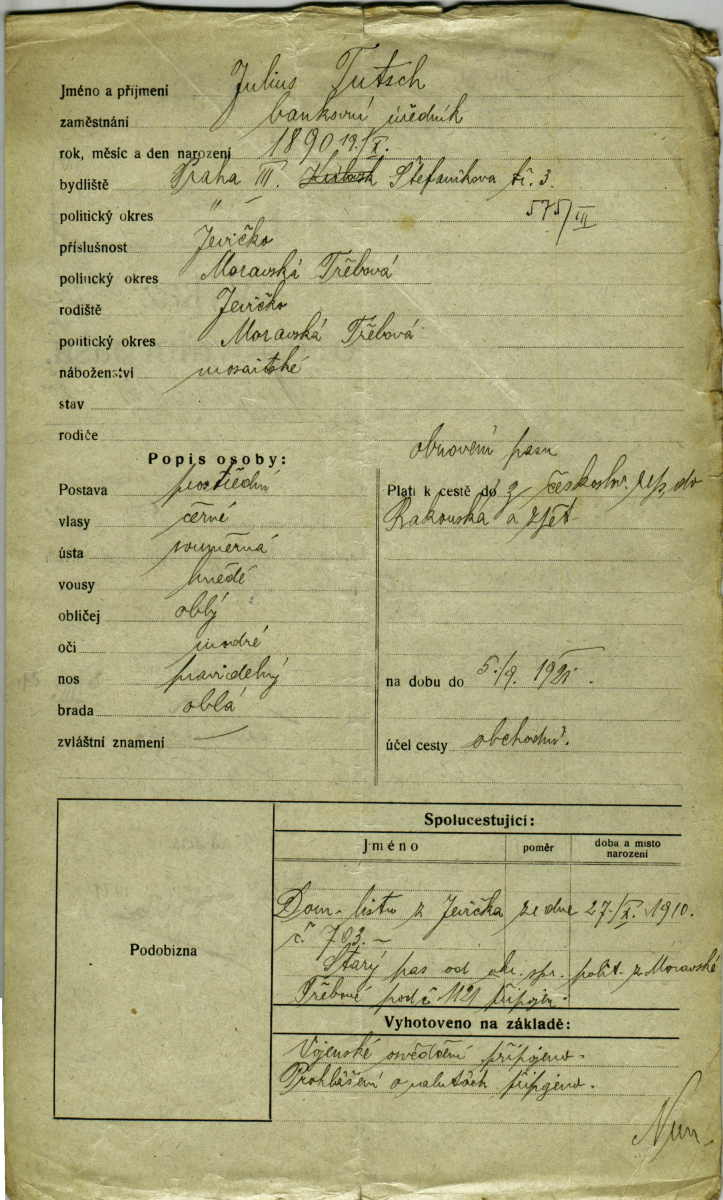 Jméno a příjmení Julius Tutsch
zaměstnání bankovní úředník
rok, měsíc a den narození 1890 19./X.
bydliště Praha III. Štefanikova tř. 3.
politický okres " — 575/III
příslušnost Jevíčko
politický okres Moravská Třebová
rodiště Jevíčko
politický okres Moravská Třebová
náboženství mosaitské
stav
rodiče
Popis osoby:
Postava prostřední
vlasy černé
ústa souměrná
vousy hnědé
obličej oblý
oči modré
nos pravidelný
brada oblá
zvláštní znamení —
obnovení pasu
Platí k cestě do z českoslov. rep. do
Rakouska a zpět
na dobu do 5./9. 1921.
účel cesty obchodní.
Podobizna
Spolucestující:
Jméno poměr doba a místo narození
Dom. listu z Jevíčka ze dne 27./X. 1910.
č. 703. –
Starý pas od okr. spr. polit. z Moravské
Třebové pod č 1121 připojen.
Vyhotoveno na základě:
Vojenské osvědčení připojeno.
Prohlášení o valutách připojeno.